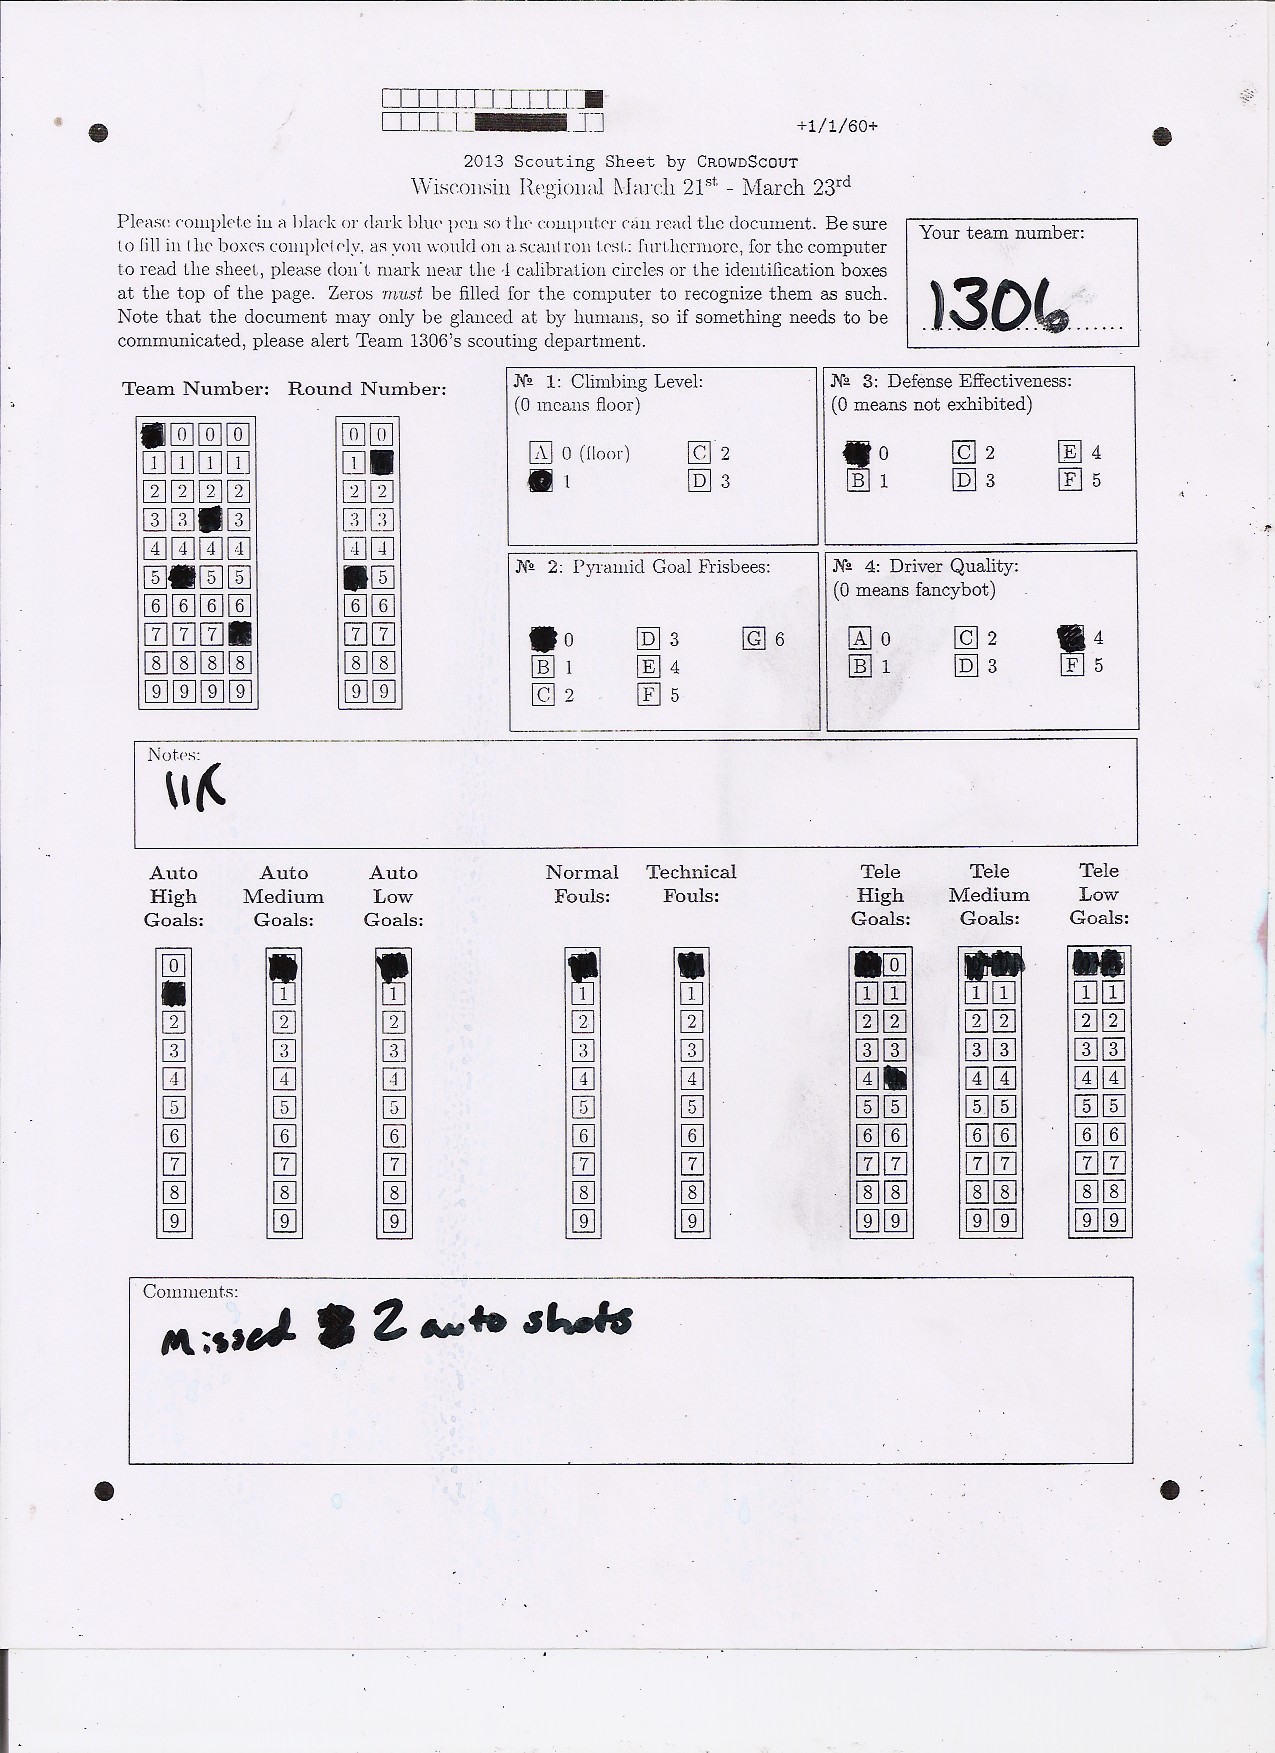 +1/1/60+
2013 Scouting Sheet by CrowdScout
Wisconsin Regional March 21st - March 23rd
Please complete in a black or dark blue pen so the computer can read the document. Be sure
to fill in the boxes completely, as you would on a scantron test; furthermore, for the computer
to read the sheet, please don't mark near the 4 calibration circles or the identification boxes
at the top of the page. Zeros must be filled for the computer to recognize them as such.
Note that the document may only be glanced at by humans, so if something needs to be
communicated, please alert Team 1306's scouting department.
Your team number:
1306
Team Number: Round Number:
0 0 0 0 0
1 1 1 1 1
2 2 2 2 2 2
3 3 3 3 3
4 4 4 4 4 4
5 5 5 5
6 6 6 6 6 6
7 7 7 7 7
8 8 8 8 8 8
9 9 9 9 9 9
№ 1: Climbing Level:
(0 means floor)
A 0 (floor) C 2
1 D 3
№ 3: Defense Effectiveness:
(0 means not exhibited)
0 C 2 E 4
B 1 D 3 F 5
№ 2: Pyramid Goal Frisbees:
0 D 3 G 6
B 1 E 4
C 2 F 5
№ 4: Driver Quality:
(0 means fancybot)
A 0 C 2 4
B 1 D 3 F 5
Notes:
Auto High Goals: Auto Medium Goals: Auto Low Goals: Normal Fouls: Technical Fouls: Tele High Goals: Tele Medium Goals: Tele Low Goals:
0 0
1 1 1 1 1 1 1 1 1 1
2 2 2 2 2 2 2 2 2 2 2
3 3 3 3 3 3 3 3 3 3 3
4 4 4 4 4 4 4 4 4 4
5 5 5 5 5 5 5 5 5 5 5
6 6 6 6 6 6 6 6 6 6 6
7 7 7 7 7 7 7 7 7 7 7
8 8 8 8 8 8 8 8 8 8 8
9 9 9 9 9 9 9 9 9 9 9
Comments:
Missed 2 auto shots